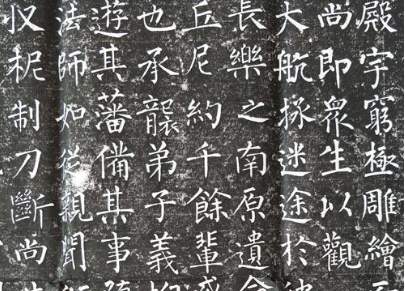 殿宇窮極雕繪
尚即衆生以觀
大航拯迷途於
長樂之南原遺
丘尼約千餘輩
也承襲弟子義
遊其藩備其事
法師如從親聞
収柅制刀斷尚